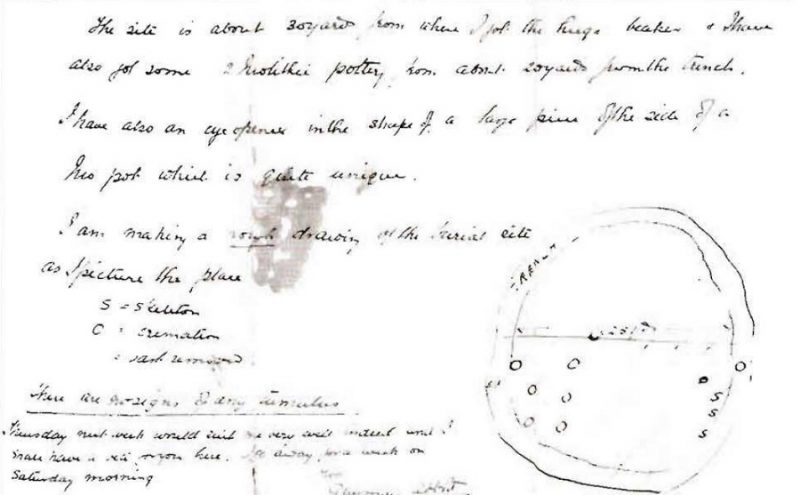 The site is about 30 yards from where I got the huge beaker & I have
also got some Neolithic pottery from about 20 yards from the trench.
I have also an eye opener in the shape of a large piece of the side of a
Neo pot which is quite unique.
I am making a rough drawing of the burial site
as I picture the place
S = Skeleton
C = cremation
= removed
There are no signs of any tumulus
Thursday next week would suit me very well indeed and I
shall have a here. away for a week on
Saturday morning
TRENCH
O C O
O O S
O O S
S